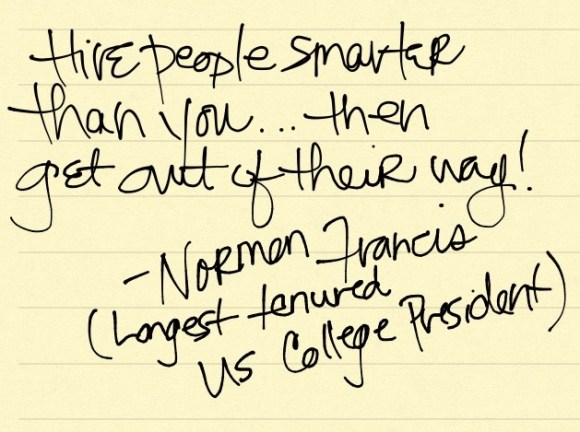 Hire people smarter
than you... then
get out of their way!
- Norman Francis
(Longest tenured
US College President)